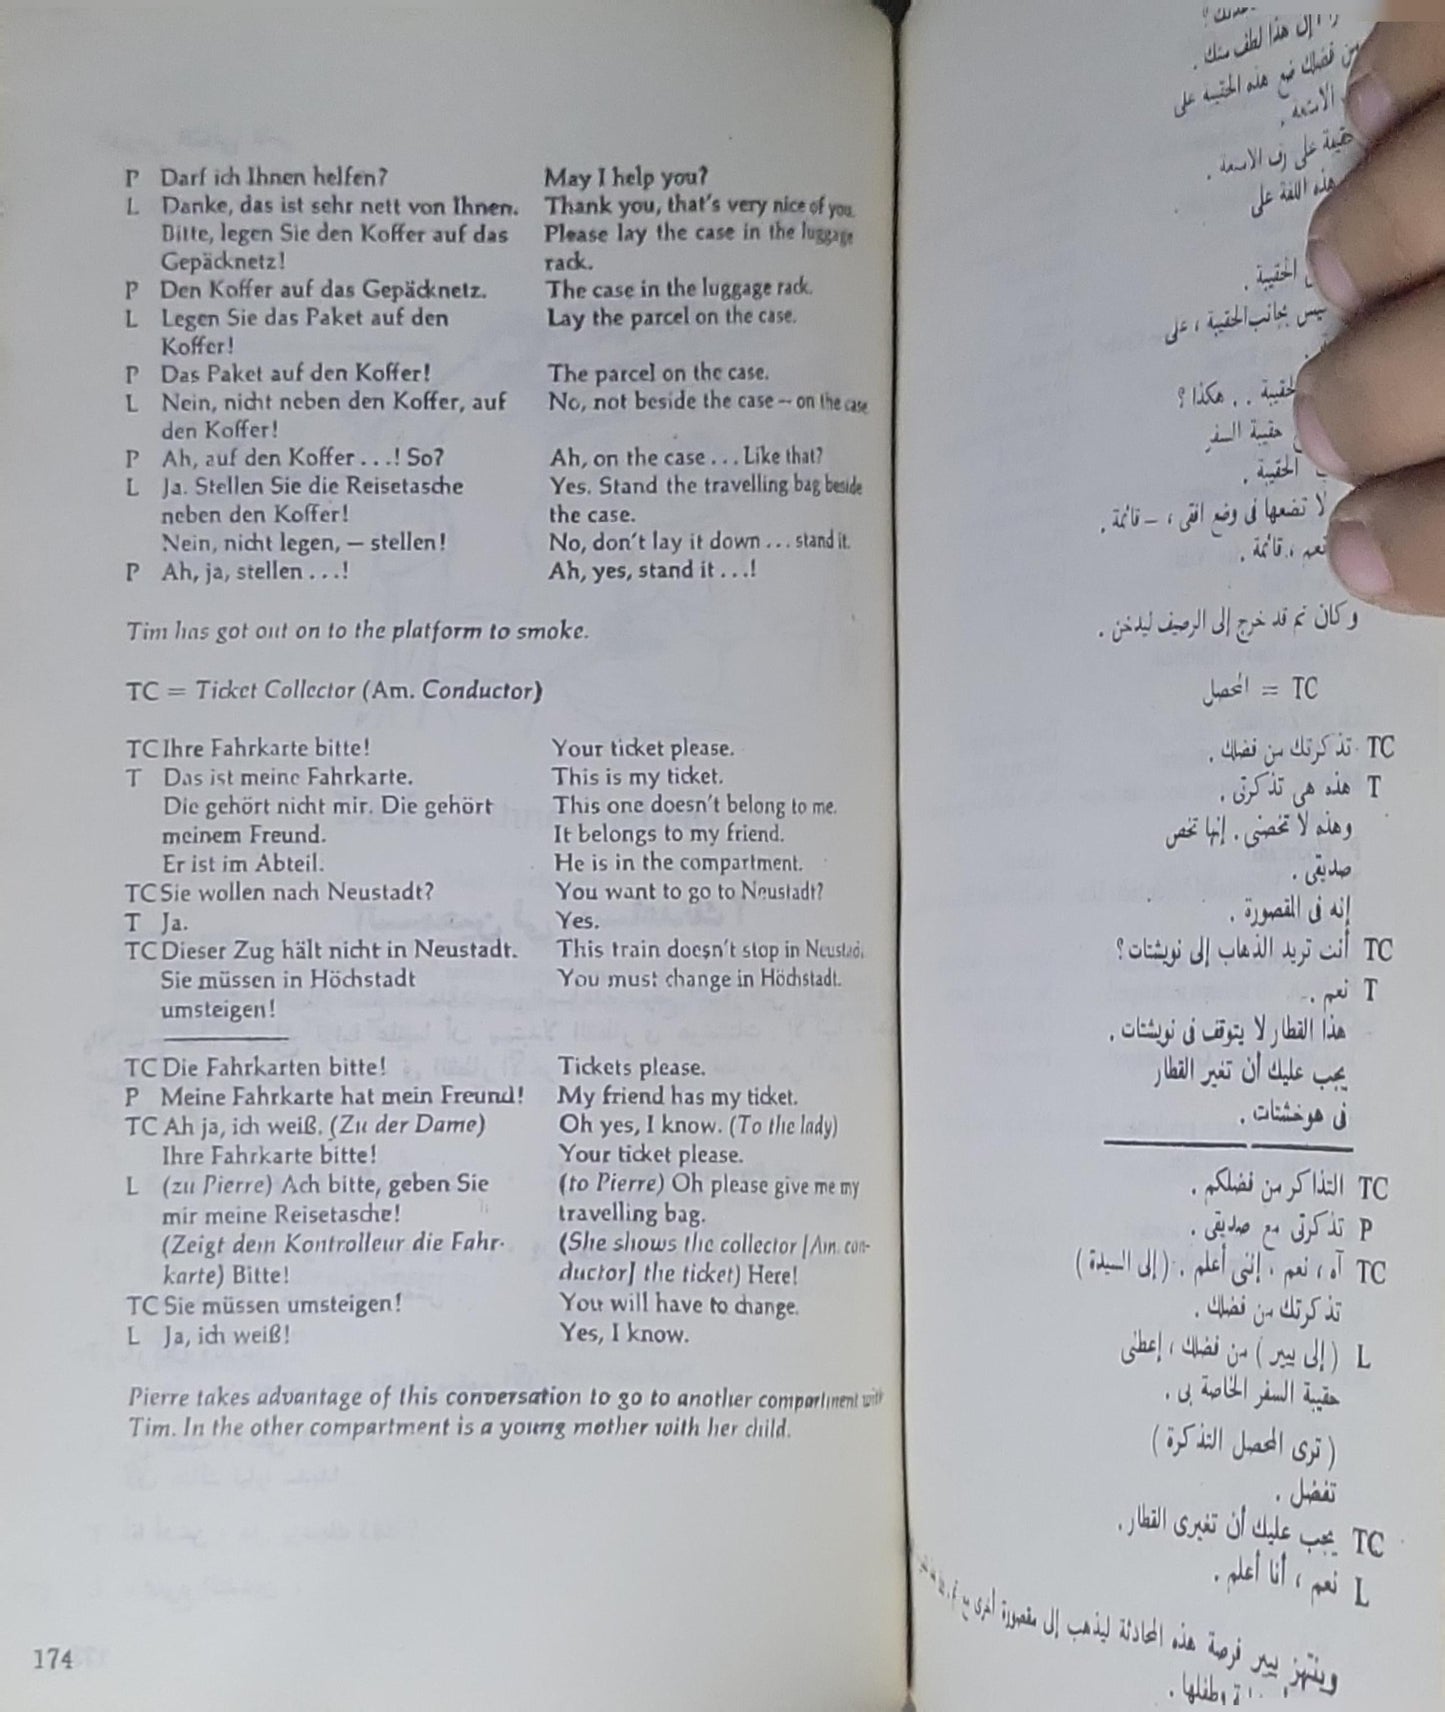 P Darf ich Ihnen helfen?
L Danke, das ist sehr nett von Ihnen.
Bitte, legen Sie den Koffer auf das
Gepäcknetz!
P Den Koffer auf das Gepäcknetz.
L Legen Sie das Paket auf den
Koffer!
P Das Paket auf den Koffer!
L Nein, nicht neben den Koffer, auf
den Koffer!
P Ah, auf den Koffer ...! So?
L Ja. Stellen Sie die Reisetasche
neben den Koffer!
Nein, nicht legen, — stellen!
P Ah, ja, stellen ...!
May I help you?
Thank you, that's very nice of you.
Please lay the case in the luggage
rack.
The case in the luggage rack.
Lay the parcel on the case.
The parcel on the case.
No, not beside the case – on the case
Ah, on the case ... Like that?
Yes. Stand the travelling bag beside
the case.
No, don't lay it down ... stand it.
Ah, yes, stand it ...!
Tim has got out on to the platform to smoke.
TC = Ticket Collector (Am. Conductor)
TC Ihre Fahrkarte bitte!
T Das ist meine Fahrkarte.
Die gehört nicht mir. Die gehört
meinem Freund.
Er ist im Abteil.
TC Sie wollen nach Neustadt?
T Ja.
TC Dieser Zug hält nicht in Neustadt.
Sie müssen in Höchstadt
umsteigen!
Your ticket please.
This is my ticket.
This one doesn't belong to me.
It belongs to my friend.
He is in the compartment.
You want to go to Neustadt?
Yes.
This train doesn't stop in Neustadt.
You must change in Höchstadt.
TC Die Fahrkarten bitte!
P Meine Fahrkarte hat mein Freund!
TC Ah ja, ich weiß. (Zu der Dame)
Ihre Fahrkarte bitte!
L (zu Pierre) Ach bitte, geben Sie
mir meine Reisetasche!
(Zeigt dem Kontrolleur die Fahr-
karte) Bitte!
TC Sie müssen umsteigen!
L Ja, ich weiß!
Tickets please.
My friend has my ticket.
Oh yes, I know. (To the lady)
Your ticket please.
(to Pierre) Oh please give me my
travelling bag.
(She shows the collector [Am. con-
ductor] the ticket) Here!
You will have to change.
Yes, I know.
Pierre takes advantage of this conversation to go to another compartment with
Tim. In the other compartment is a young mother with her child.
174
إن هذا لطف منك .
فضلك ضع هذه الحقيبة على
على رف الامتعة .
هذه اللفة على
الحقيبة .
ليس بجانب الحقيبة ، على
الحقيبة .. هكذا ؟
حقيبة السفر
الحقيبة .
لا تضعها فى وضع افقى ، – قائمة .
نعم ، قائمة .
وكان تم قد خرج إلى الرصيف ليدخن .
TC = المحصل
TC تذكرتك من فضلك .
T هذه هى تذكرتى .
وهذه لا تخصنى . إنها تخص
صديقى .
إنه فى المقصورة .
TC أنت تريد الذهاب إلى نويشتات ؟
T نعم .
هذا القطار لا يتوقف فى نويشتات .
يجب عليك أن تغير القطار
فى هوخشتات .
TC التذاكر من فضلكم .
P تذكرتى مع صديقى .
TC آه ، نعم ، إننى أعلم . ( إلى السيدة )
تذكرتك من فضلك .
L ( إلى بيير ) من فضلك ، إعطنى
حقيبة السفر الخاصة بى .
( ترى المحصل التذكرة )
تفضل .
TC يجب عليك أن تغيرى القطار .
L نعم ، أنا أعلم .
وينتهز بيير فرصة هذه المحادثة ليذهب إلى مقصورة أخرى مع
وطفلها .